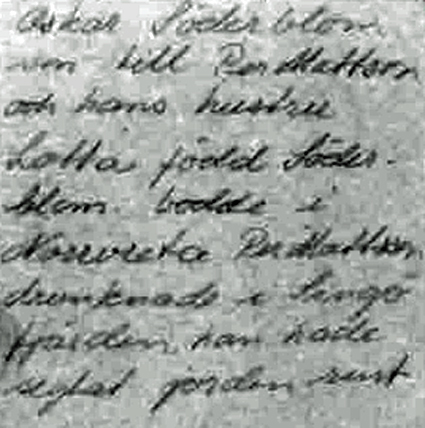 Oskar Söderblom
vän till Per Mattson
och hans hustru
Lotta född Söder-
blom. bodde i
Norrvreta Per Mattsson
drunknade i Singö
fjärden, han hade
seglat jorden runt